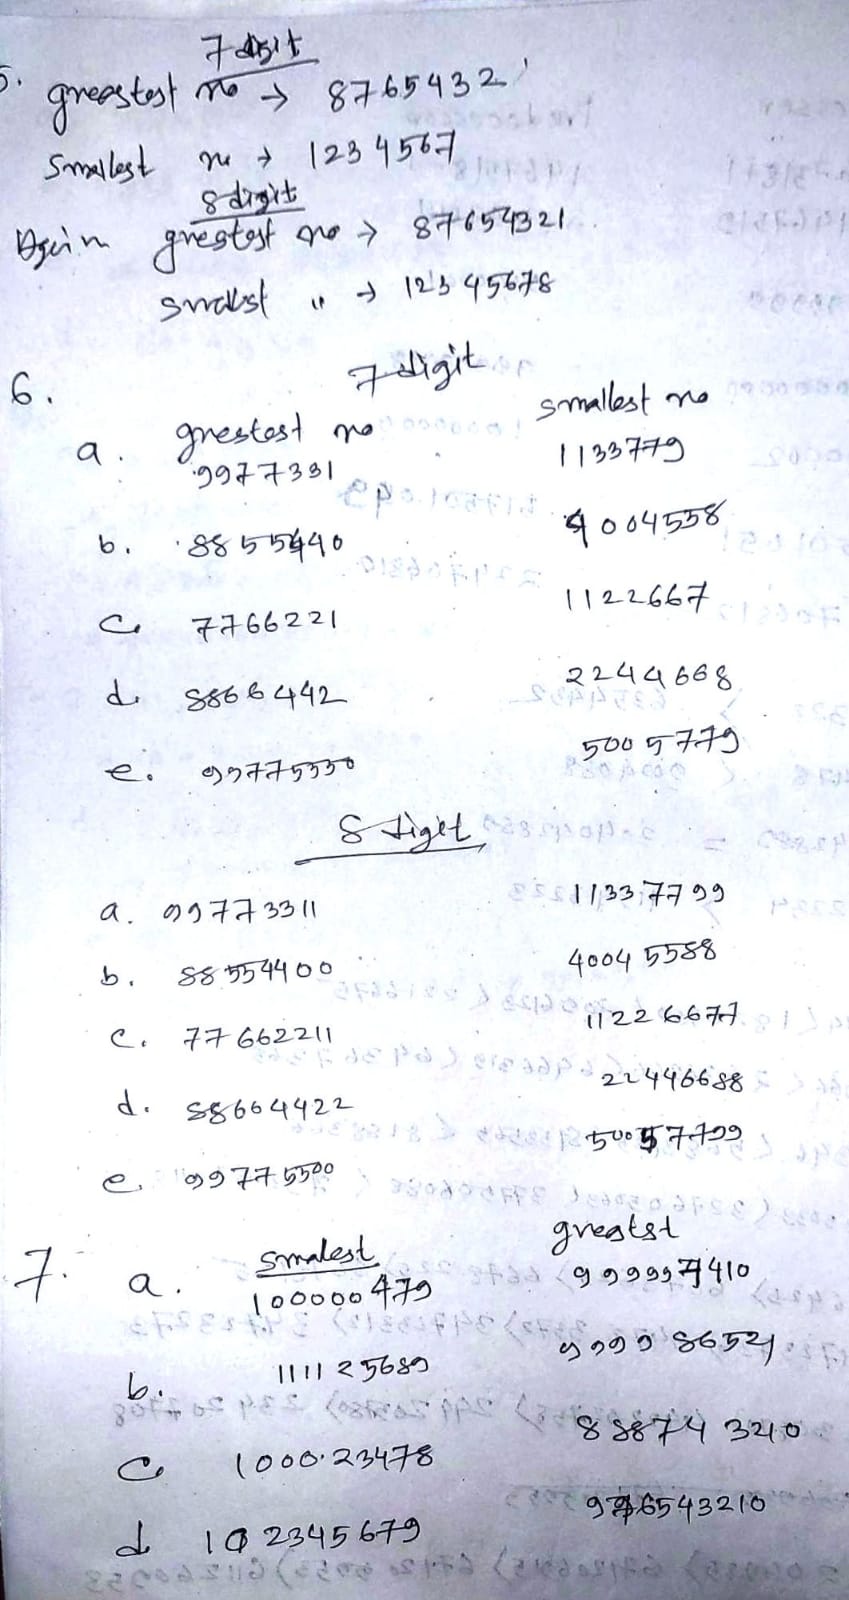 5. 7 digit
greastest no → 8765432
Smallest no → 1234567
8 digit
Again greatest no → 87654321
smallest " → 12345678
7 digit
6. greatest no smallest no
a. 9977331 1133779
b. 8855440 4004558
c. 7766221 1122667
d. 8866442 2244668
e. 9977550 5005779
8 digit
a. 99773311 11337799
b. 88554400 40045588
c. 77662211 11226677
d. 88664422 22446688
e. 99775500 50057799
7. smalest greatst
a. 100000479 999997410
b. 111125689 999986521
c 100023478 888743210
d 102345679 976543210